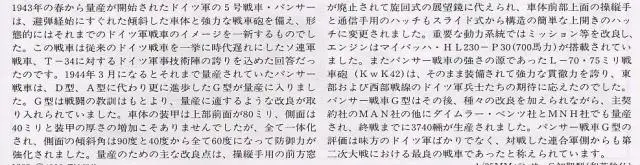 1943年の春から量産が開始されたドイツ軍の5号戦車・パンサー
は、避弾経始にすぐれた傾斜した車体と強力な戦車砲を備え、形
態的にはそれまでのドイツ軍戦車のイメージを一新するものでし
た。この戦車は従来のドイツ戦車を一挙に時代遅れにしたソ連軍
戦車、T−34に対するドイツ軍事技術陣の誇りを込めた回答だっ
たのです。1944年3月になるとそれまで量産されていたパンサー
戦車は、D型、A型に代わり更に進歩したG型が量産に入りまし
た。G型は戦闘の教訓はもとより、量産に適するような改良が取
り入れられていました。車体の装甲は上部前面が80ミリ、側面は
40ミリと装甲の厚さの増加こそありませんでしたが、全て一体化
され、側面の傾斜角は90度と40度から全て60度になって防御力が
強化されました。量産のための主な改良点は、操縦手の前方窓
が廃止されて旋回式の展望鏡に代えられ、車体前部上面の操縦手
と通信手用のハッチもスライド式から構造の簡単な上開きのハッ
チに変更されました。重要な動力系統ではミッション等を改良し、
エンジンはマイバッハ・HL230−P30(700馬力)が搭載されてい
ました。またパンサー戦車の強さの源であったL−70・75ミリ戦
車砲(KwK42)は、そのまま装備されて強力な貫徹力を誇り、東
部および西部戦線のドイツ軍兵士たちの期待に応えたのでした。
パンサー戦車G型はその後、種々の改良を加えられながら、主契
約社のMAN社の他にダイムラー・ベンツ社とMNH社でも量産
され、終戦までに3740輌が生産されました。パンサー戦車G型の
評価は味方のドイツ軍ばかりでなく、対戦した連合軍側からも第
二次大戦における最良の戦車であったと称えられています。